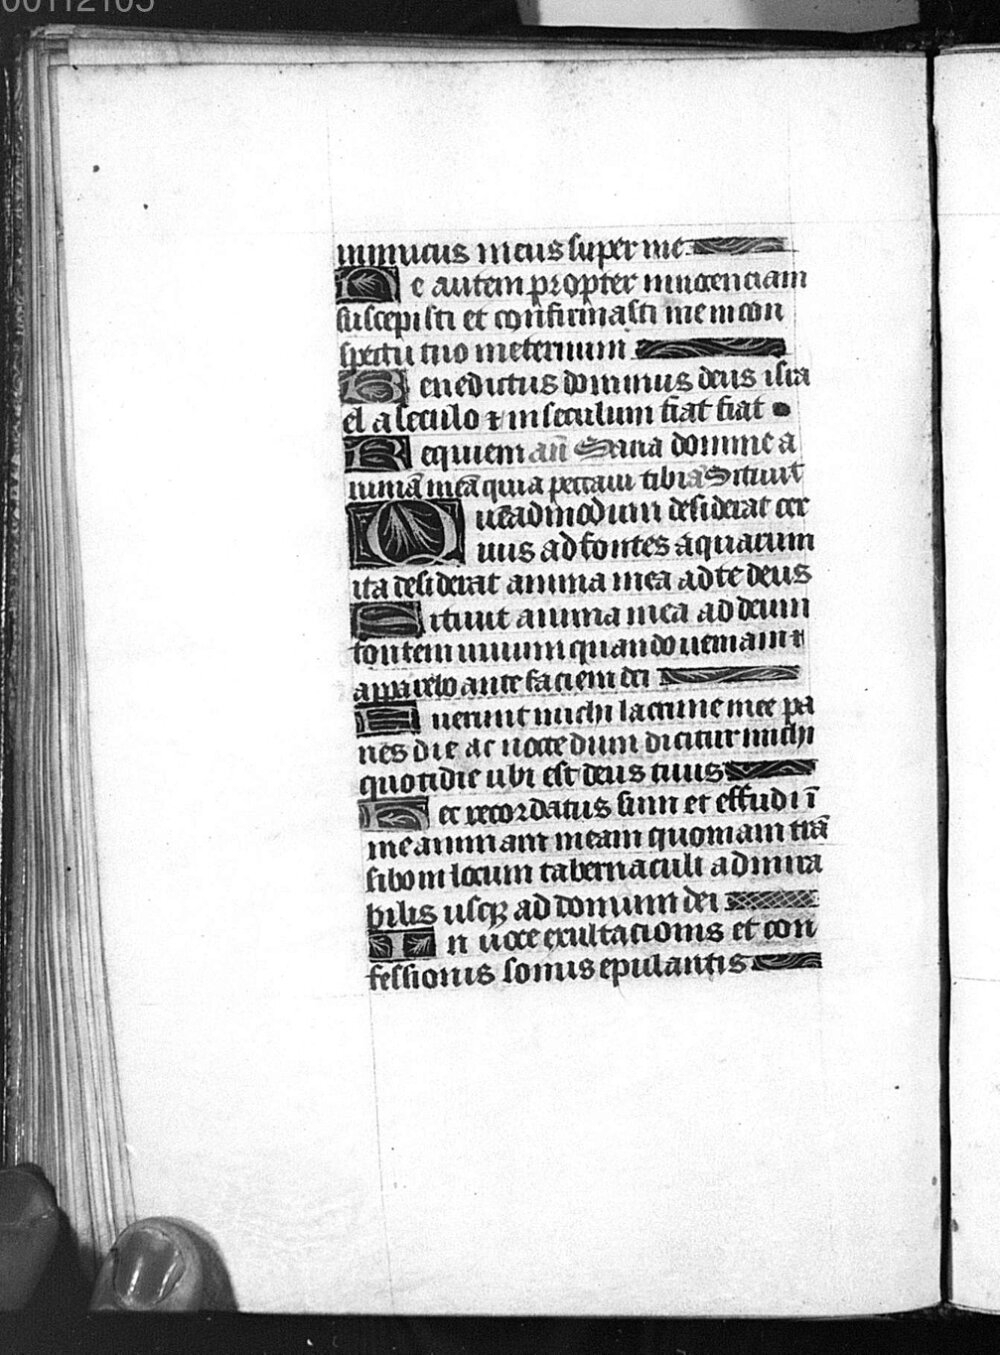 00112105
inimicus meus super me
Me autem propter innocenciam
suscepisti et confirmasti me in con
spectu tuo in eternum
Benedictus dominus deus isra
el a seculo ⁊ in seculum fiat fiat
Requiem an̄ Sana domine a
nimā meā quia peccaui tibi ā Sitiuit
Quēadmodum desiderat cer
uus ad fontes aquarum
ita desiderat anima mea ad te deus
Sitiuit anima mea ad deum
fontem uiuum quando ueniam ⁊
apparebo ante faciem dei
Fuerunt michi lacrime mee pa
nes die ac nocte dum dicitur michi
quotidie ubi est deus tuus
Hec recordatus sum et effudi ī
me animam meam quoniam trā
sibo in locum tabernaculi admira
bilis usqꝫ ad domum dei
In uoce exultacionis et con
fessionis sonus epulantis